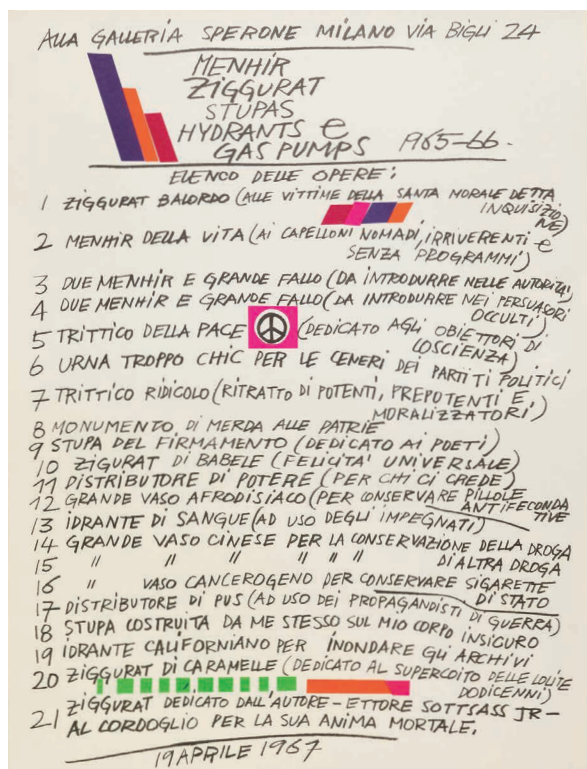 ALLA GALLERIA SPERONE MILANO VIA BIGLI 24
MENHIR
ZIGGURAT
STUPAS
HYDRANTS e
GAS PUMPS 1965-66.
ELENCO DELLE OPERE:
1 ZIGGURAT BALORDO (ALLE VITTIME DELLA SANTA MORALE DETTA
INQUISIZIO
NE)
2 MENHIR DELLA VITA (AI CAPELLONI NOMADI, IRRIVERENTI E
SENZA PROGRAMMI)
3 DUE MENHIR E GRANDE FALLO (DA INTRODURRE NELLE AUTORITÀ)
4 DUE MENHIR E GRANDE FALLO (DA INTRODURRE NEI PERSUASORI
OCCULTI)
5 TRITTICO DELLA PACE (DEDICATO AGLI OBIETTORI DI
COSCIENZA)
6 URNA TROPPO CHIC PER LE CENERI DEI PARTITI POLITICI
7 TRITTICO RIDICOLO (RITRATTO DI POTENTI, PREPOTENTI E
MORALIZZATORI)
8 MONUMENTO DI MERDA ALLE PATRIE
9 STUPA DEL FIRMAMENTO (DEDICATO AI POETI)
10 ZIGURAT DI BABELE (FELICITA' UNIVERSALE)
11 DISTRIBUTORE DI POTERE (PER CHI CI CREDE)
12 GRANDE VASO AFRODISIACO (PER CONSERVARE PILLOLE
ANTIFECONDA
TIVE)
13 IDRANTE DI SANGUE (AD USO DEGLI IMPEGNATI)
14 GRANDE VASO CINESE PER LA CONSERVAZIONE DELLA DROGA
15 " " " " " " DI ALTRA DROGA
16 " VASO CANCEROGENO PER CONSERVARE SIGARETTE
DI STATO
17 DISTRIBUTORE DI PUS (AD USO DEI PROPAGANDISTI DI GUERRA)
18 STUPA COSTRUITA DA ME STESSO SUL MIO CORPO INSICURO
19 IDRANTE CALIFORNIANO PER INONDARE GLI ARCHIVI
20 ZIGGURAT DI CARAMELLE (DEDICATO AL SUPERCOITO DELLE LOLITE
DODICENNI)
21 ZIGGURAT DEDICATO DALL'AUTORE - ETTORE SOTTSASS JR -
AL CORDOGLIO PER LA SUA ANIMA MORTALE.
19 APRILE 1967